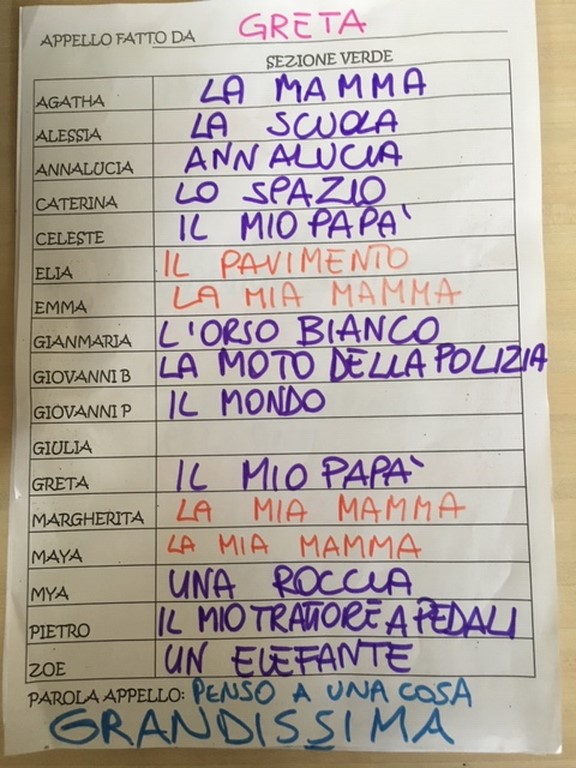 APPELLO FATTO DA GRETA
SEZIONE VERDE
AGATHA LA MAMMA
ALESSIA LA SCUOLA
ANNALUCIA ANNALUCIA
CATERINA LO SPAZIO
CELESTE IL MIO PAPA'
ELIA IL PAVIMENTO
EMMA LA MIA MAMMA
GIANMARIA L'ORSO BIANCO
GIOVANNI B LA MOTO DELLA POLIZIA
GIOVANNI P IL MONDO
GIULIA
GRETA IL MIO PAPA'
MARGHERITA LA MIA MAMMA
MAYA LA MIA MAMMA
MYA UNA ROCCIA
PIETRO IL MIO TRATTORE A PEDALI
ZOE UN ELEFANTE
PAROLA APPELLO: PENSO A UNA COSA
GRANDISSIMA